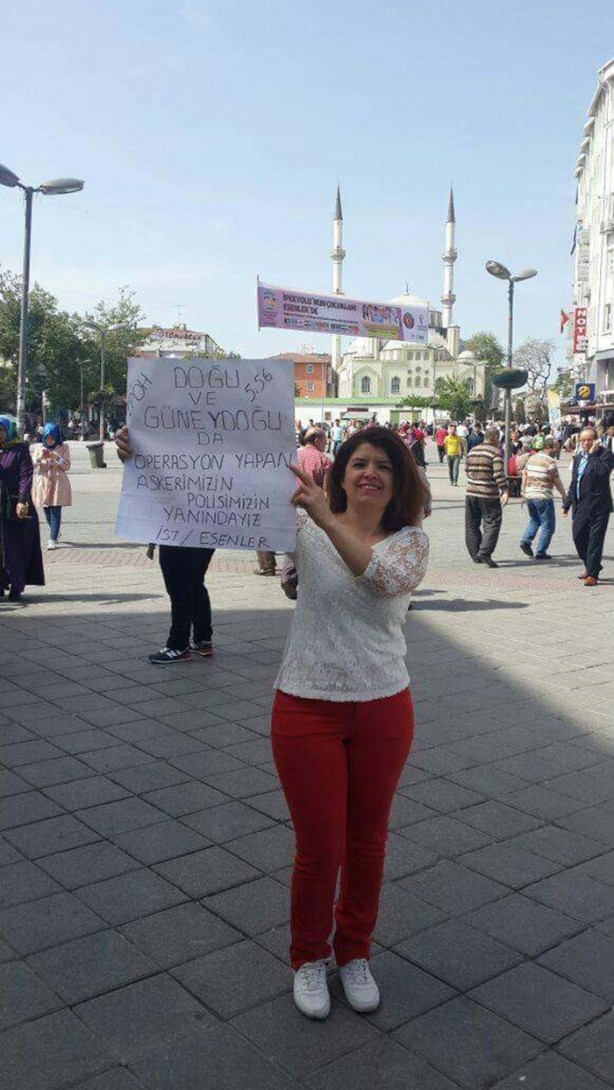 İPEKYOLU'NUN ÇOCUKLARI
ESENLER'DE
DOĞU
5.56
VE
GÜNEYDOĞU
DA
OPERASYON YAPAN
ASKERİMİZİN
POLİSİMİZİN
YANINDAYIZ
İST/ESENLER